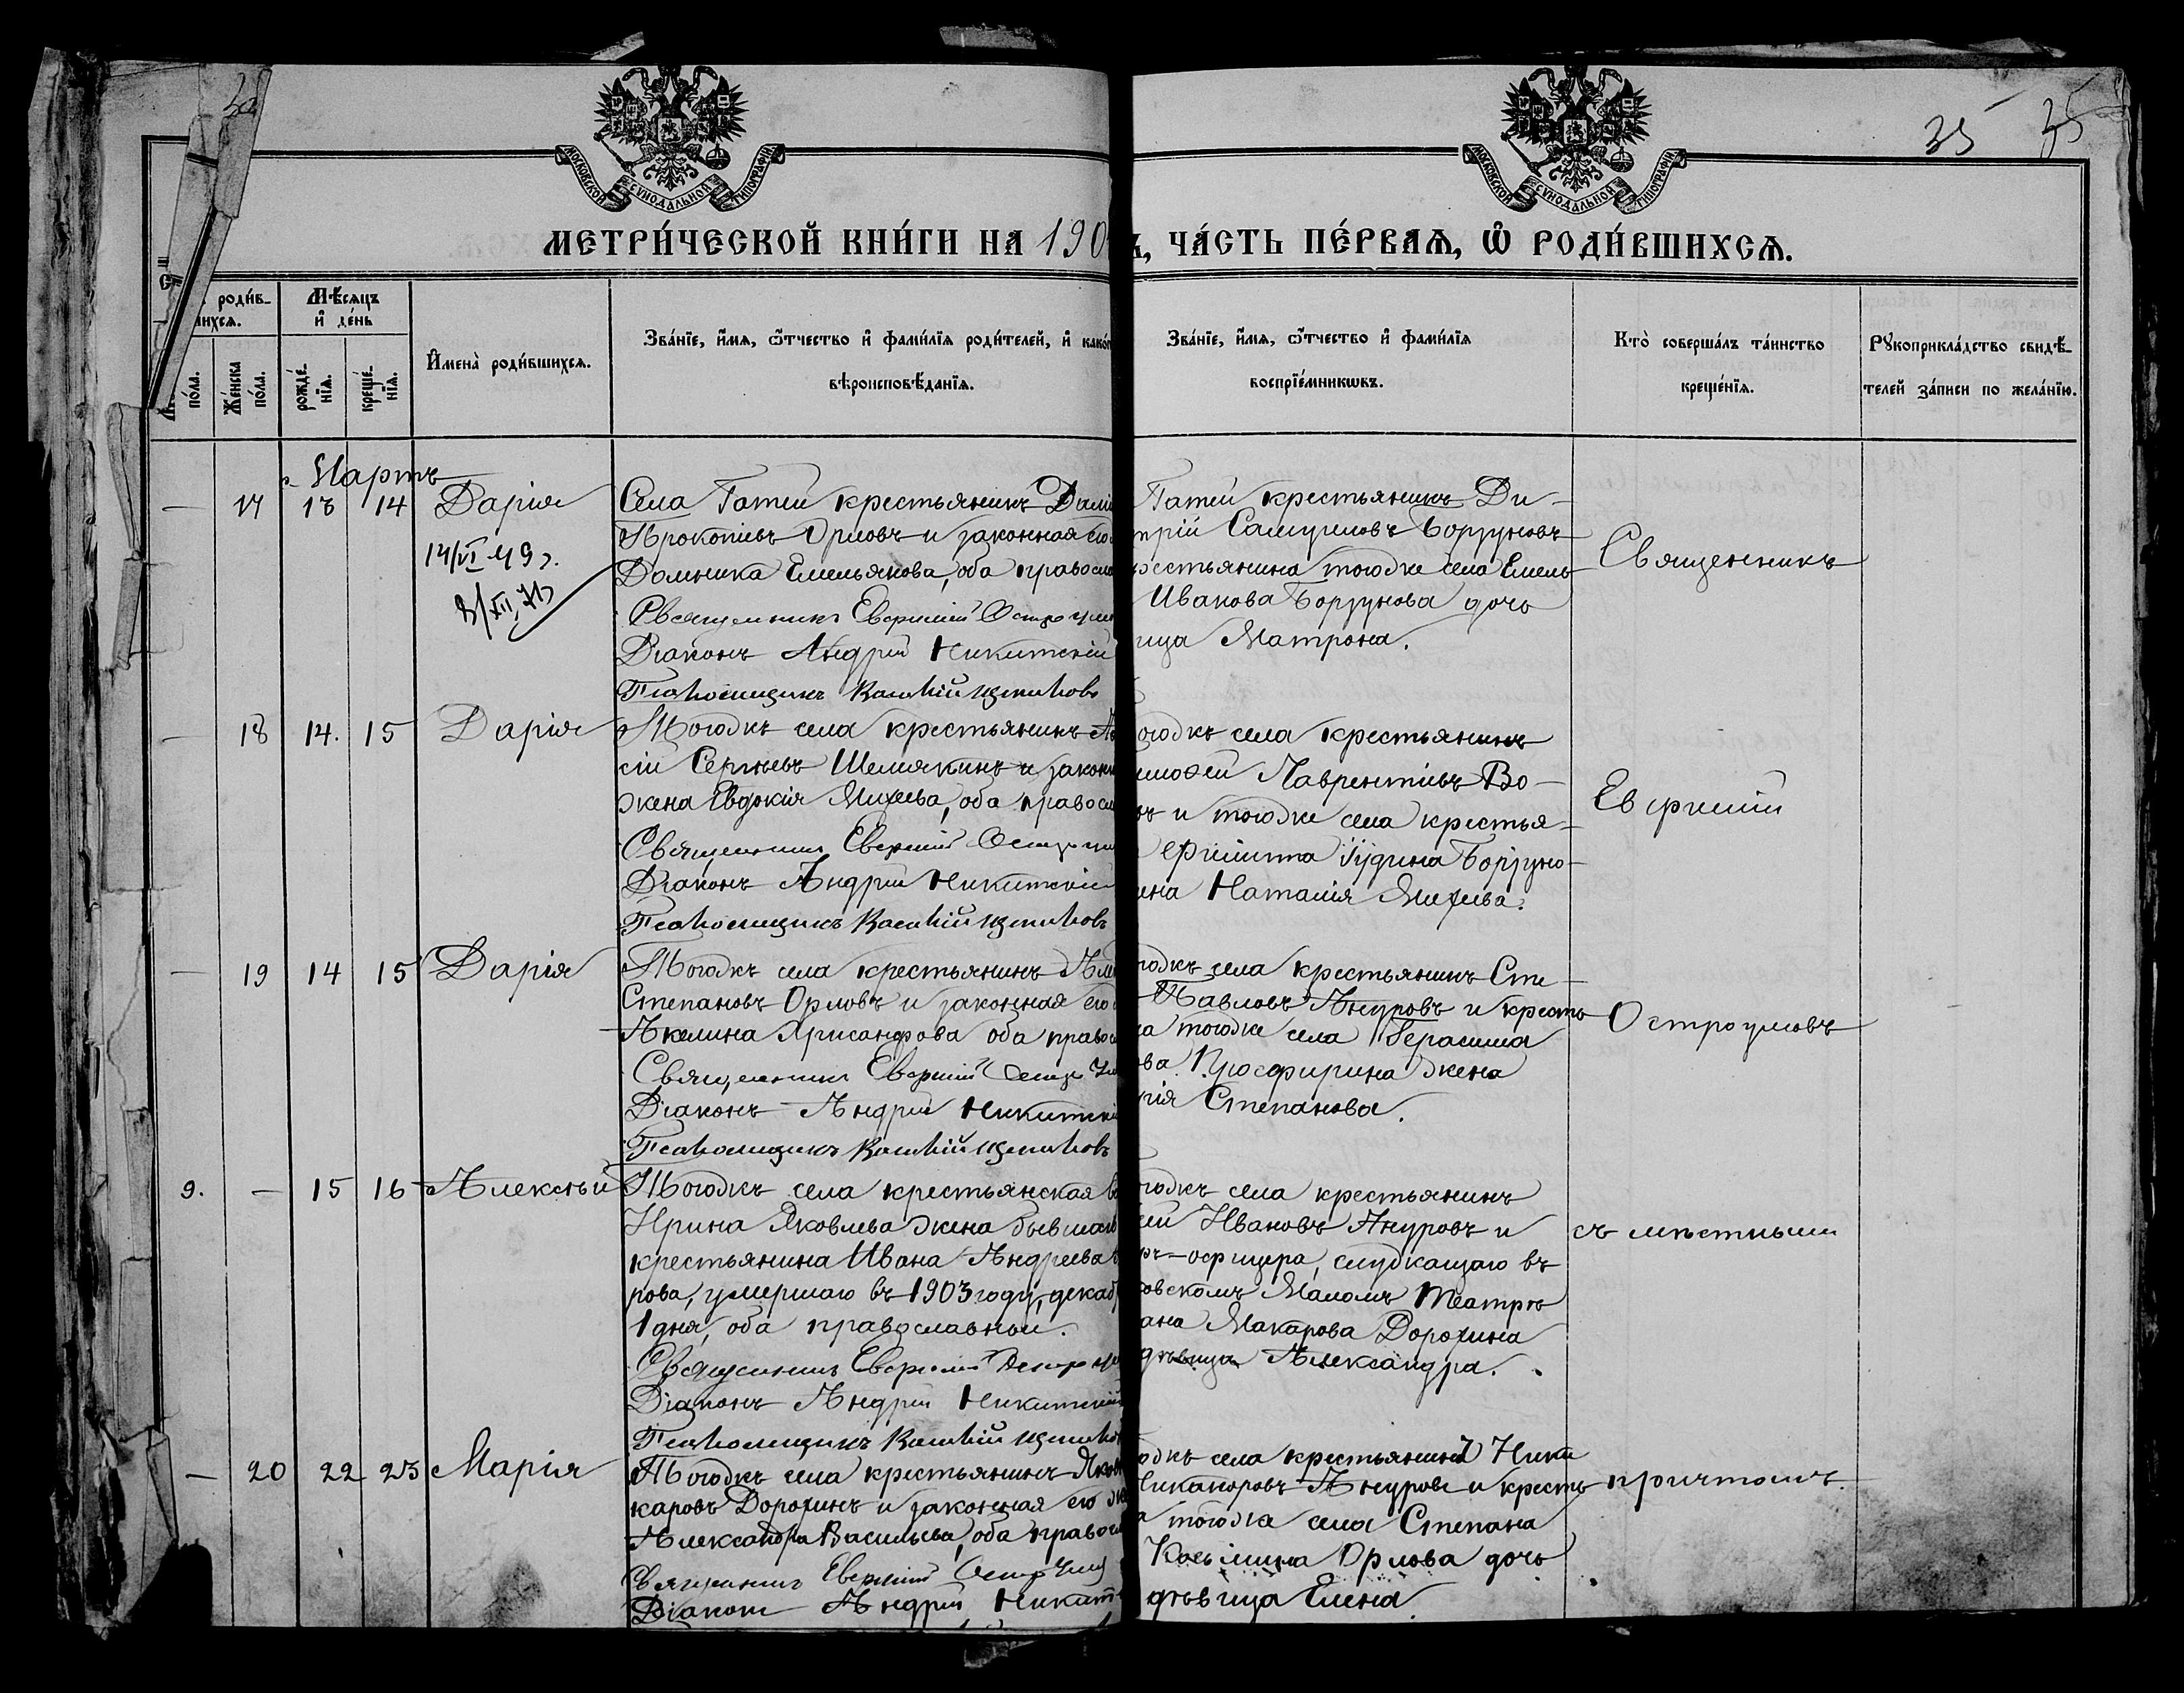 35 35
МОСКОВСКОЙ СѴНОДАЛЬНОЙ ТИПОГРАФІИ
МОСКОВСКОЙ СѴНОДАЛЬНОЙ ТИПОГРАФІИ
МЕТРИ́ЧЕСКОЙ КНИ́ГИ НА 190
, ЧА́СТЬ ПЕ́РВАѦ, Ѡ҆ РОДИ́ВШИХСѦ.
роди́в-
шихсѧ.
Мѣ́сѧцъ
и҆ де́нь
по́ла.
Же́нска
по́ла.
рожде́-
нїѧ.
креще́-
нїѧ.
И҆мена̀ роди́вшихсѧ.
Зва́нїе, и҆́мѧ, ѻ҆́тчество и҆ фами́лїѧ роди́телей, и҆ како́г
вѣроисповѣ́данїѧ.
Зва́нїе, и҆́мѧ, ѻ҆́тчество и҆ фами́лїѧ
воспрїе́мникѡвъ.
Кто̀ соверша́лъ та́инство
креще́нїѧ.
Рꙋкоприкла́дство свидѣ́-
телей за́писи по жела́нїю.
Мартъ
— 17 13 14 Дарія
14/VI 49 г.
Села Гатей крестьянинъ Дам
Прокопіевъ Орловъ и законная его
Домника Емельянова, оба правосла
Священникъ Евфимій Остроум
Діаконъ Андрей Никитскій
Псаломщикъ
Гатей крестьянинъ Ди-
трій Самуиловъ Борзуновъ
рестьянина тогоже села Емель
Иванова Борзунова дочь
ица Матрона.
Священникъ
— 18 14. 15 Дарія
Тогожъ села крестьянинъ Ал
сій Сергѣевъ Шемякинъ и законн
жена Евдокія Михеева, оба правосл
Священникъ Евфимій Остроум
Діаконъ Андрей Никитскій
Псаломщикъ
огожъ села крестьянинъ
имофей Лаврентіевъ Во-
въ и тогоже села крестья-
ерилипа Іудина Борзуно-
ена Наталія Михеева.
Евфимій
— 19 14 15 Дарія
Тогожъ села крестьянинъ Але
Степановъ Орловъ и законная его
Акелина Хрисанфова оба правосл
Священникъ Евфимій Остроум
Діаконъ Андрей Никитскі
Псаломщикъ
гожъ села крестьянинъ Сте-
Павловъ Ануровъ и кресть
на тогоже села Герасима
ова Просфирина жена
рія Степанова.
Остроумовъ
9. — 15 16 Алексѣй
Тогожъ села крестьянская в
Ирина Яковлева жена бывшаго
крестьянина Ивана Андреева
рова, умершаго въ 1903 году, декаб
1 дня, оба православной.
Священникъ Евфимій Остроум
Діаконъ Андрей Никитскій
Псаломщикъ
гожъ села крестьянинъ
ей Ивановъ Ануровъ и
ръ-офицера, служащаго въ
овскомъ Маломъ Театрѣ
ана Макарова Дорохина
дѣвица Александра.
съ мѣстнымъ
— 20 22 23 Марія
Тогожъ села крестьянинъ Яковъ
каровъ Дорохинъ и законная его же
Александра Васильева, оба правосл
Священникъ Евфимій Остроум
Діаконъ Андрей Никит
ожъ села крестьянинъ Ники
Никаноровъ Ануровъ и кресть
а тогоже села Степана
Косьмина Орлова дочь
дѣвица Елена
причтомъ.